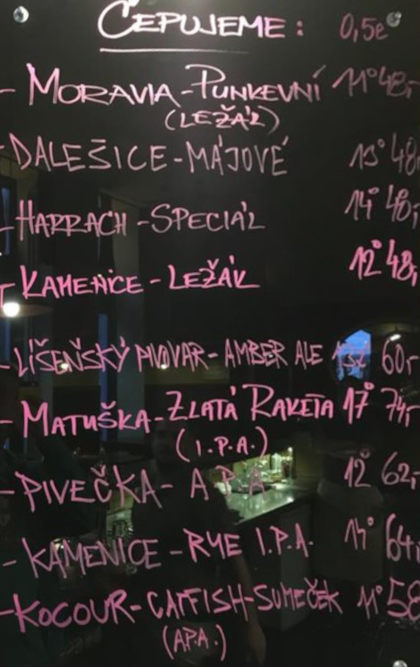 ČEPUJEME: 0,5l
- MORAVIA-PUNKEVNÍ 11° 48,-
(LEŽÁK)
- DALEŠICE-MÁJOVÉ 13° 48
- HARRACH-SPECIÁL 14° 48,-
- KAMENICE-LEŽÁK 12° 48,
- LÍŠEŇSKÝ PIVOVAR-AMBER ALE 60,-
- MATUŠKA-ZLATÁ RAKETA 17° 74,-
(I.P.A.)
- PIVEČKA- APA 12° 62,
- KAMENICE-RYE I.P.A. 64,
- KOCOUR-CATFISH-SUMEČEK 11° 58
(APA.)